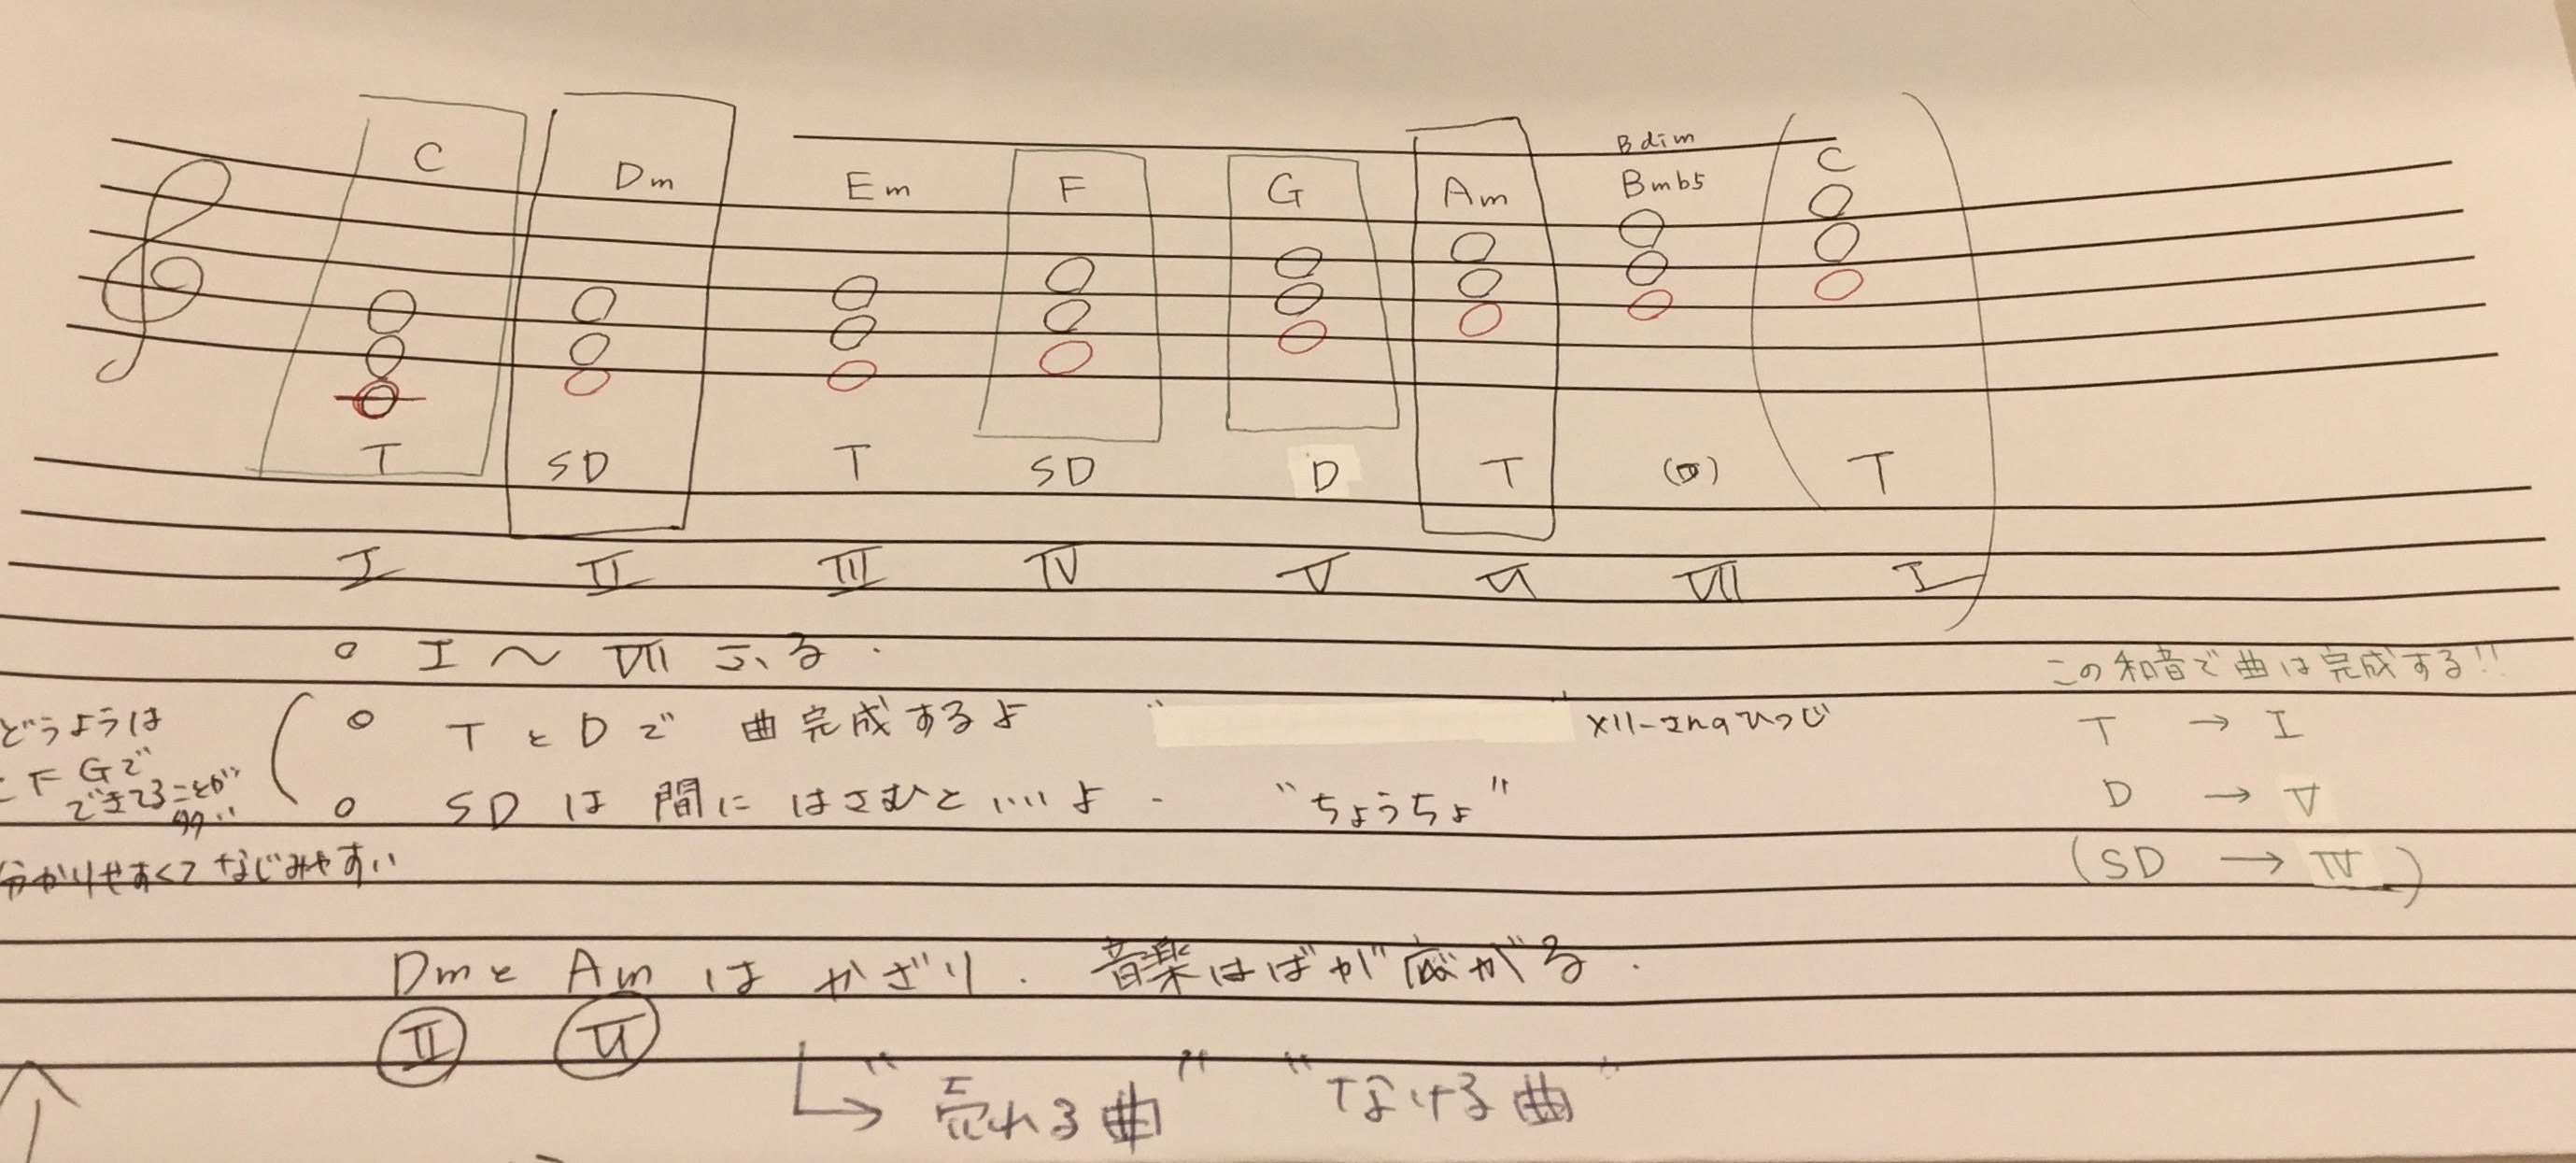 C Dm Em F G Am Bdim Bmb5 C
T SD T SD D T (D) T
I II III IV V VI VII I
○ I〜VII ふる.
この和音で曲は完成する!!
どうようは
F Gで
できてることが
多い
分かりやすくて なじみやすい
○ TとDで 曲完成するよ
メリーさんのひつじ
○ SDは間にはさむといいよ. "ちょうちょ"
T → I
D → V
(SD → IV)
DmとAmは かざり. 音楽はばが広がる.
II VI
↳ "売れる曲" "なける曲"